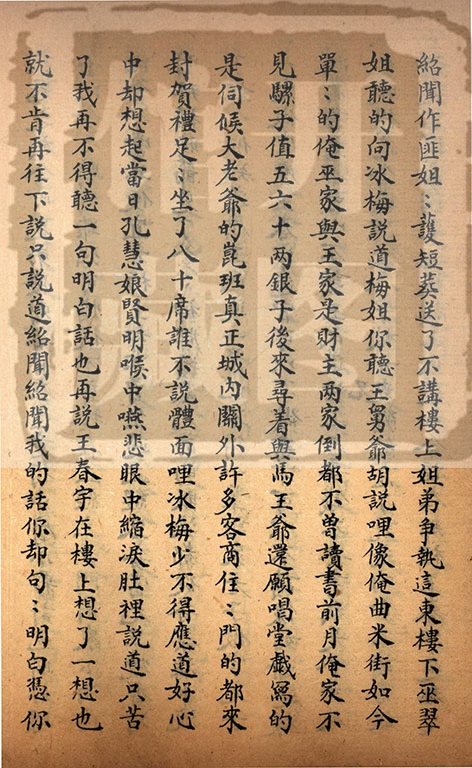 紹聞作匪姐〻護短葬送了不講樓上姐弟争執這東樓下巫翠
姐聽的向冰梅説道梅姐你聽王舅爺胡説哩像俺曲米街如今
單〻的俺巫家與王家是財主两家倒都不曾讀書前月俺家不
見騾子值五六十两銀子後來尋着與馬王爺還願唱堂戲寫的
是伺候大老爺的崑班真正城内關外許多客商住〻門的都來
封賀禮足〻坐了八十席誰不説體面哩冰梅少不得應道好心
中却想起當日孔慧娘賢明喉中嚥悲眼中縮淚肚裡説道只苦
了我再不得聽一句明白話也再説王春宇在樓上想了一想也
就不肯再往下説只説道紹聞紹聞我的話你却句〻明白憑你